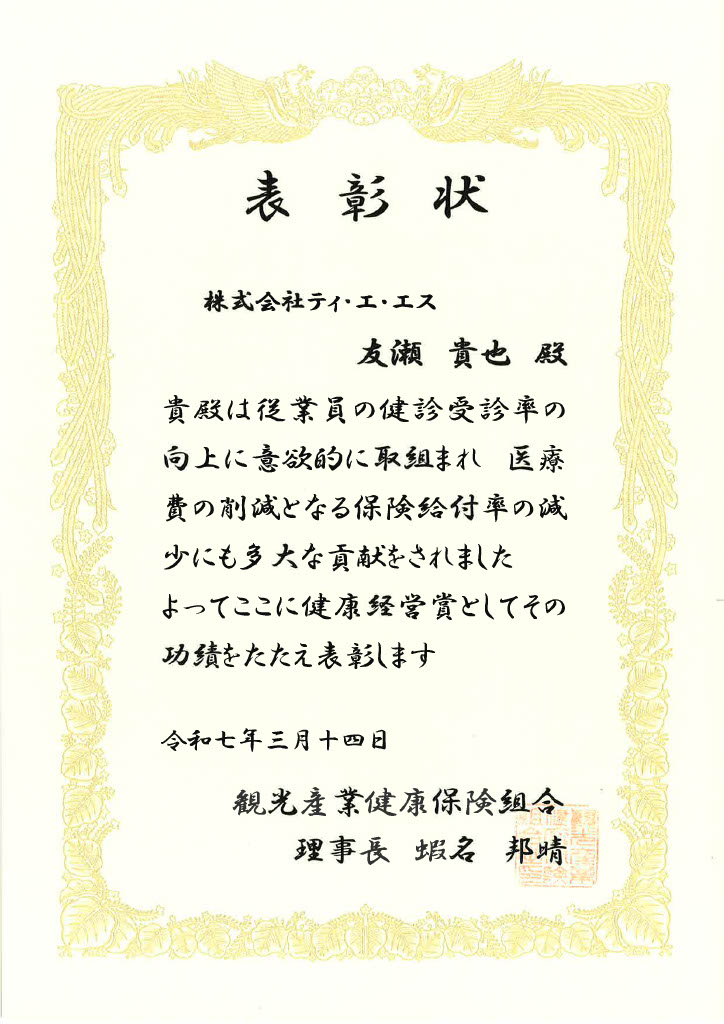 表彰状
株式会社ティ・エ・エス
友瀬 貴也 殿
貴殿は従業員の健診受診率の
向上に意欲的に取組まれ 医療
費の削減となる保険給付率の減
少にも多大な貢献をされました
よってここに健康経営賞としてその
功績をたたえ表彰します
令和七年三月十四日
観光産業健康保険組合
理事長 蝦名 邦晴